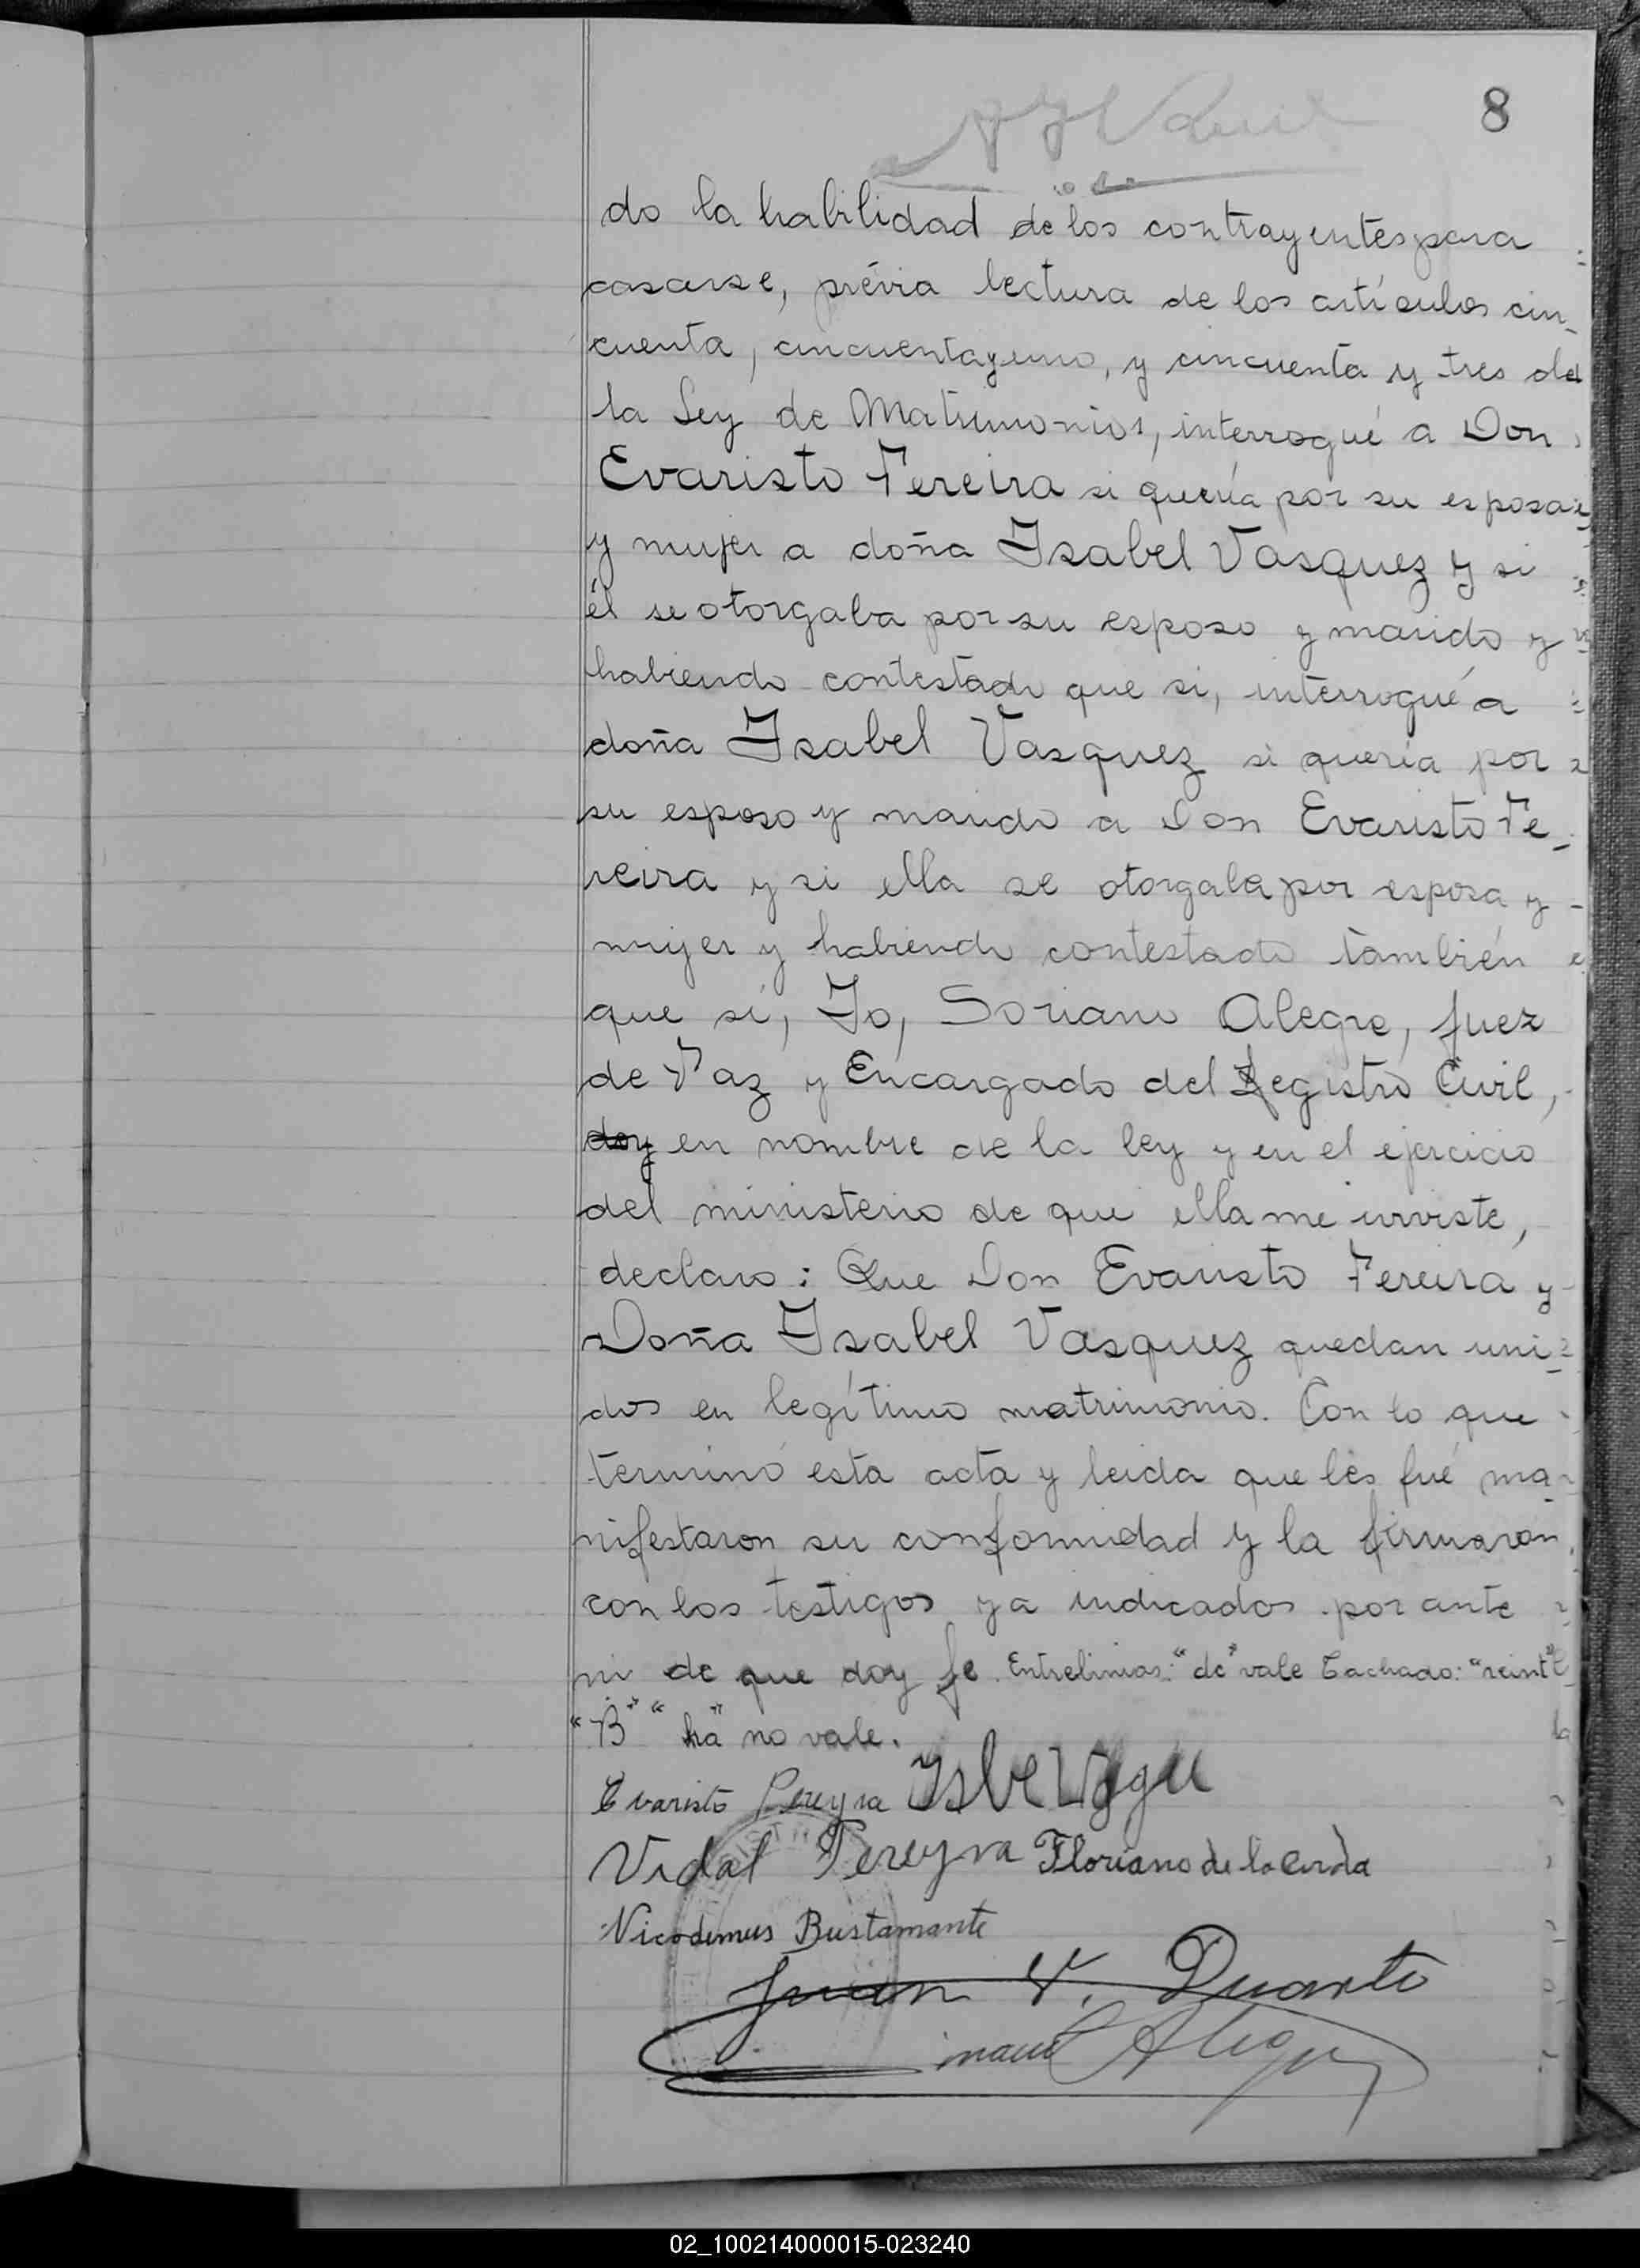 8
do la habilidad de los contrayentes para
casarse, prévia lectura de los artículos cin-
cuenta, cincuenta y uno, y cincuenta y tres de
la Ley de Matrimonios, interrogué a Don
Evaristo Pereira si quería por su esposa
y mujer a doña Isabel Vasquez y si
él se otorgaba por su esposo y marido y
habiendo contestado que si, interrogué a
doña Isabel Vasquez si quería por
su esposo y marido a Don Evaristo Pe-
reira y si ella se otorgaba por esposa y
mujer y habiendo contestado también
que sí, Yo, Soriano Alegre, Juez
de Paz y Encargado del Registro Civil,
doy en nombre de la ley y en el ejercicio
del ministerio de que ella me inviste,
declaro: Que Don Evaristo Pereira y
Doña Isabel Vasquez quedan uni-
dos en legítimo matrimonio. Con lo que
terminó esta acta y leida que les fué ma-
nifestaron su conformidad y la firmaron
con los testigos ya indicados por ante
mi de que doy fe. Entrelinias: "de" vale Tachado: "veint"
"B" "ha" no vale.
Evaristo Pereyra
Vidal Pereyra Floriano de la Cerda
Nicodemus Bustamante
Juan V. Duarte
Alegre
02_100214000015-023240